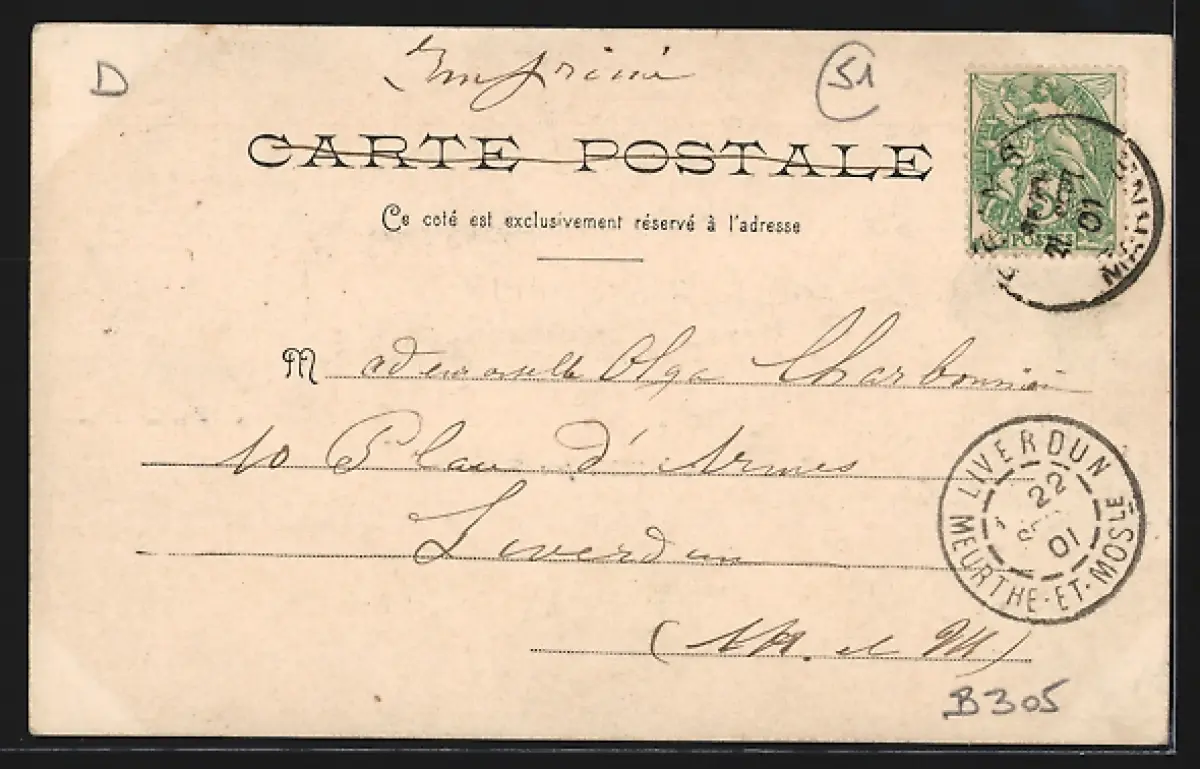 D
Imprimé
51
CARTE POSTALE
5
POSTES
MARNE
21
01
Ce coté est exclusivement réservé à l'adresse
Mademoiselle Olga Charbonnier
10 Place d'Armes
Liverdun
(M. et M.)
LIVERDUN
22
01
MEURTHE-ET-MOSLE
B305